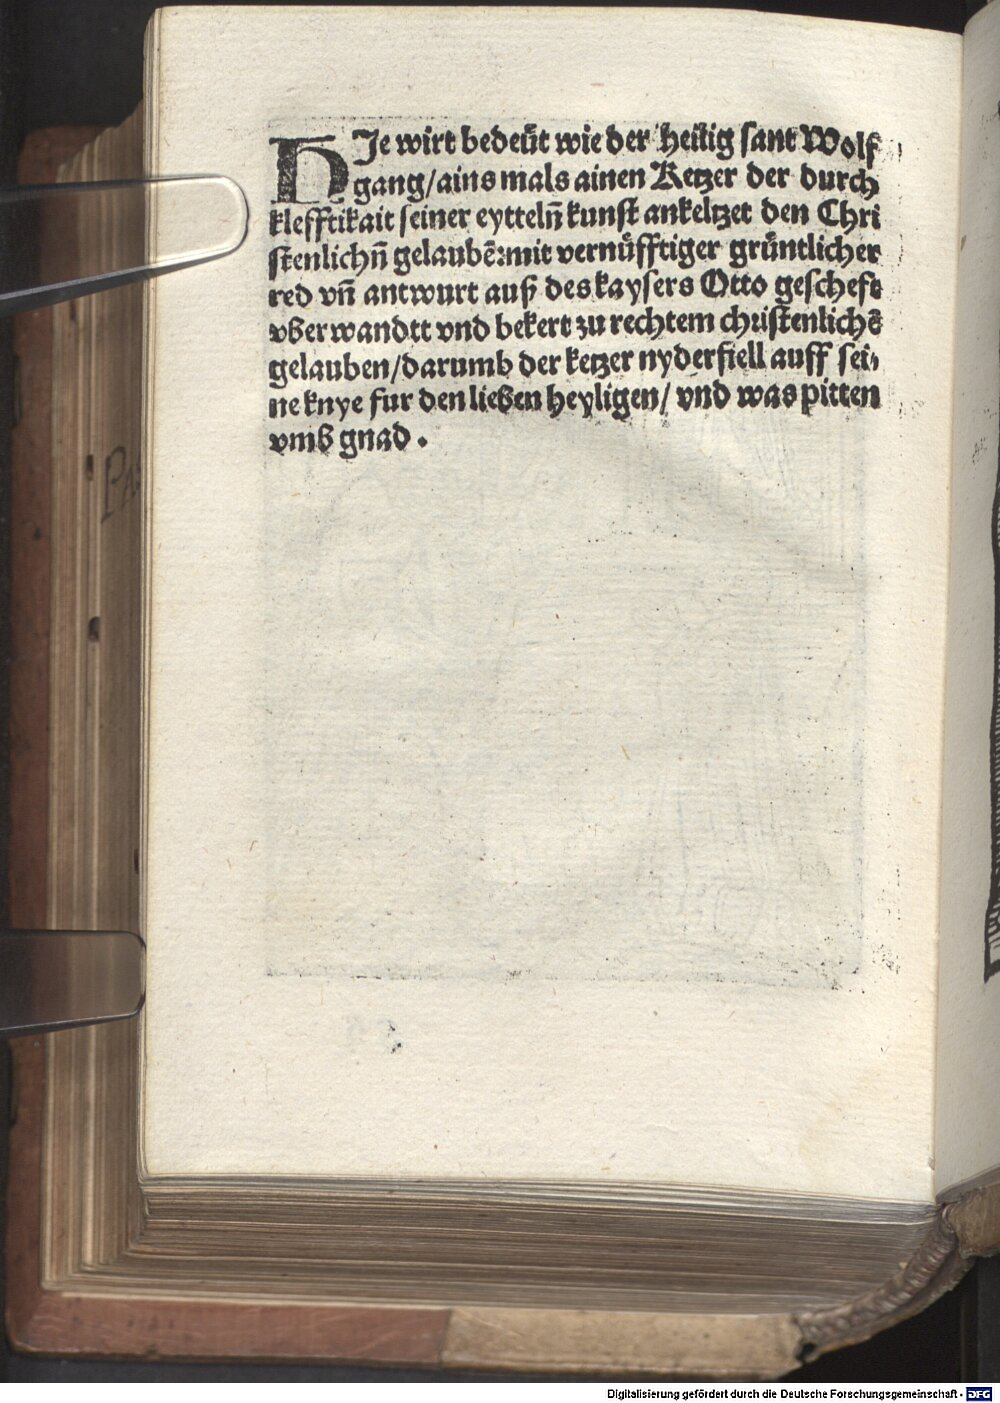 HJe wirt bedeüt wie der heilig sant Wolf
gang/ains mals ainen Ketzer der durch
klefftikait seiner eyttelñ kunst ankeltzet den Chri
stenlichñ gelaubē:mit vernüfftiger gründtlicher
red vñ antwurt auß des kaysers Otto gescheft
vberwandtt vnd bekert zu rechtem christenlichē
gelauben/darumb der ketzer nyderfiell auff sei⸗
ne knye fur den lieben heyligen/ vnd was pitten
vmb gnad .
PA
Digitalisierung gefördert durch die Deutsche Forschungsgemeinschaft - DFG